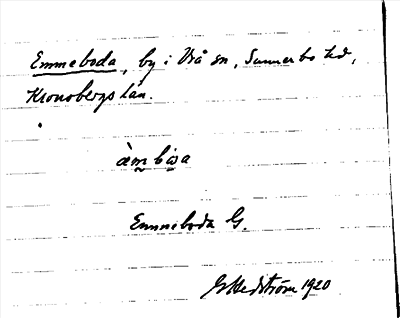 Emmeboda, by i Vrå sn, Sunnerbo hd,
Kronobergs län.
Emmeboda G.
G Hedström 1920